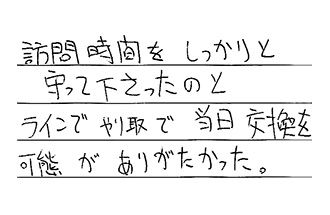 訪問時間を しっかりと
守って下さったのと
ラインで やり取で 当日 交換を
可態 が ありがたかった。